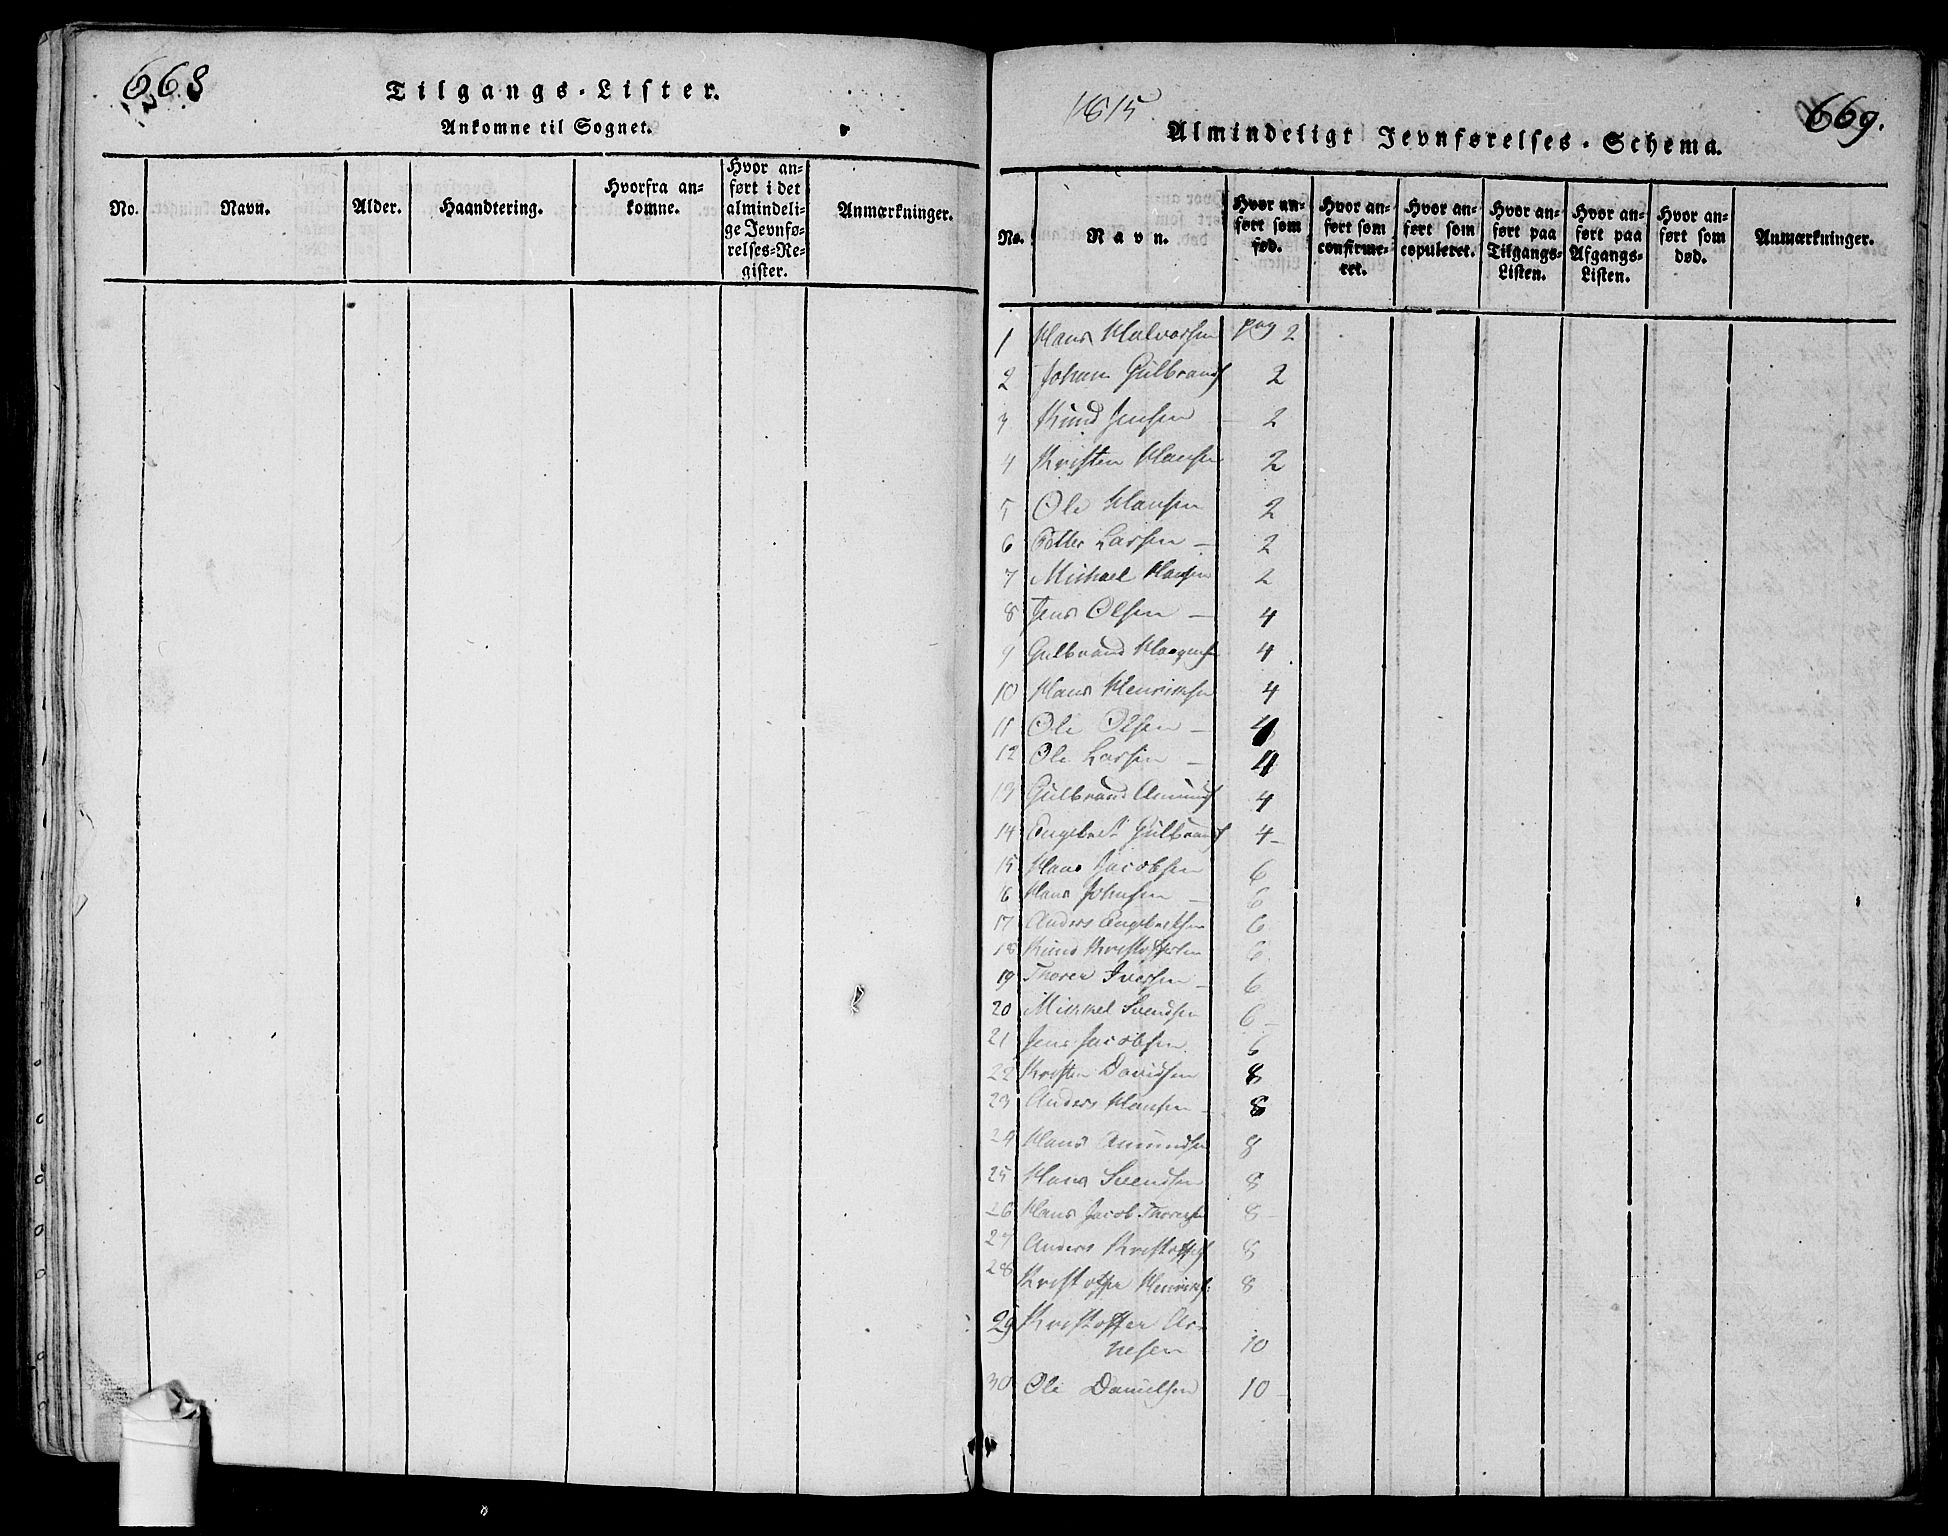 668
Tilgangs-Lister.
Ankomne til Sognet.
No.
Navn.
Alder.
Haandtering.
Hvorfra an-
komne.
Hvor an-
ført i det
almindeli-
ge Jevnfø-
relses-Re-
gister.
Anmærkninger.
1815
669.
Almindeligt Jevnførelses-Schema.
No.
Navn.
Hvor an-
ført som
fød.
Hvor an-
ført som
confirme-
ret.
Hvor an-
ført som
copuleret.
Hvor an-
ført paa
Tilgangs-
Listen.
Hvor an-
ført paa
Afgangs-
Listen.
Hvor an-
ført som
død.
Anmærkninger.
1 Hans Halvorsen pag 2
2 Johan Gulbrands 2
3 Knud Jensen – 2
4 Kristen Hansen 2
5 Ole Hansen 2
6 Petter Larsen – 2
7 Michael Hansen 2
8 Jens Olsen – 4
9 Gulbrand Haagens 4
10 Hans Henriksen 4
11 Ole Olsen – 4
12 Ole Larsen – 4
13 Gulbrand Amunds 4
14 Engebret Gulbrands 4 –
15 Hans Jacobsen 6
16 Hans Johnsen – 6
17 Anders Engebretsen 6
18 Knud Kristoffersen 6
19 Thorer Iversen – 6
20 Mikkel Svendsen 6 –
21 Jens Jacobsen 6
22 Kristen Davidsen 8
23 Anders Hansen – 8
24 Hans Amundsen 8
25 Hans Svendsen 8
26 Hans Jacob Thoresen 8 –
27 Anders Kristoffers 8
28 Kristoffer Henriks: 8
29 Kristoffer Ar-
nesen 10
30 Ole Danielsen 10 –